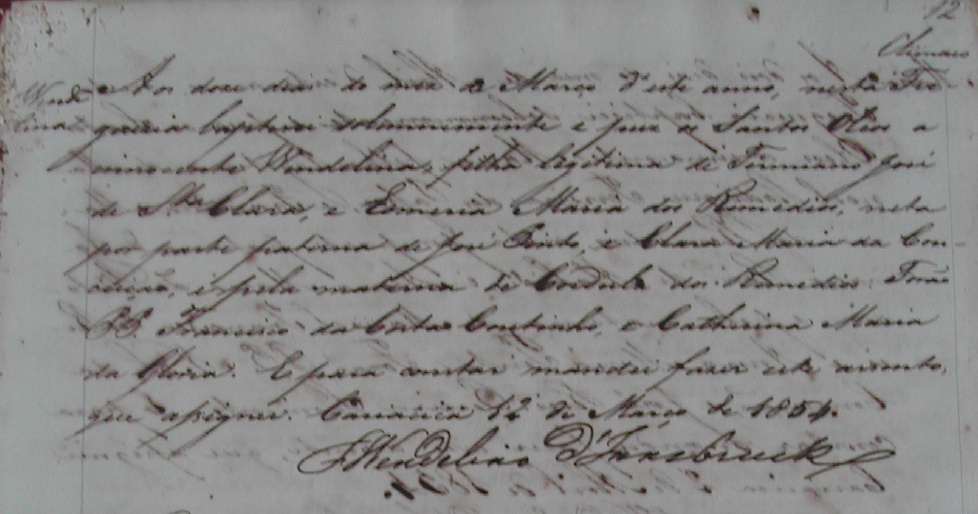 12
Climaco
Wende
lina
Aos doze dias do mez de Março d'este anno, nesta Fre
guezia baptizei solemnemente e puz os Santos Oleos a
innocente Wendelina, filha legitima de Firmiano José
de Sta Clara, e Emeria Maria dos Remedios, neta
por parte paterna de José Pinto, e Clara Maria da Con-
ceição, e pela materna de Cordula dos Remedios. Forão
PP. Francisco da Costa Coutinho, e Catharina Maria
da Gloria. E para constar mandei fazer este assento,
que assignei. Cariacica 12 de Março de 1854.
Fr Wendelino d'Innsbruck